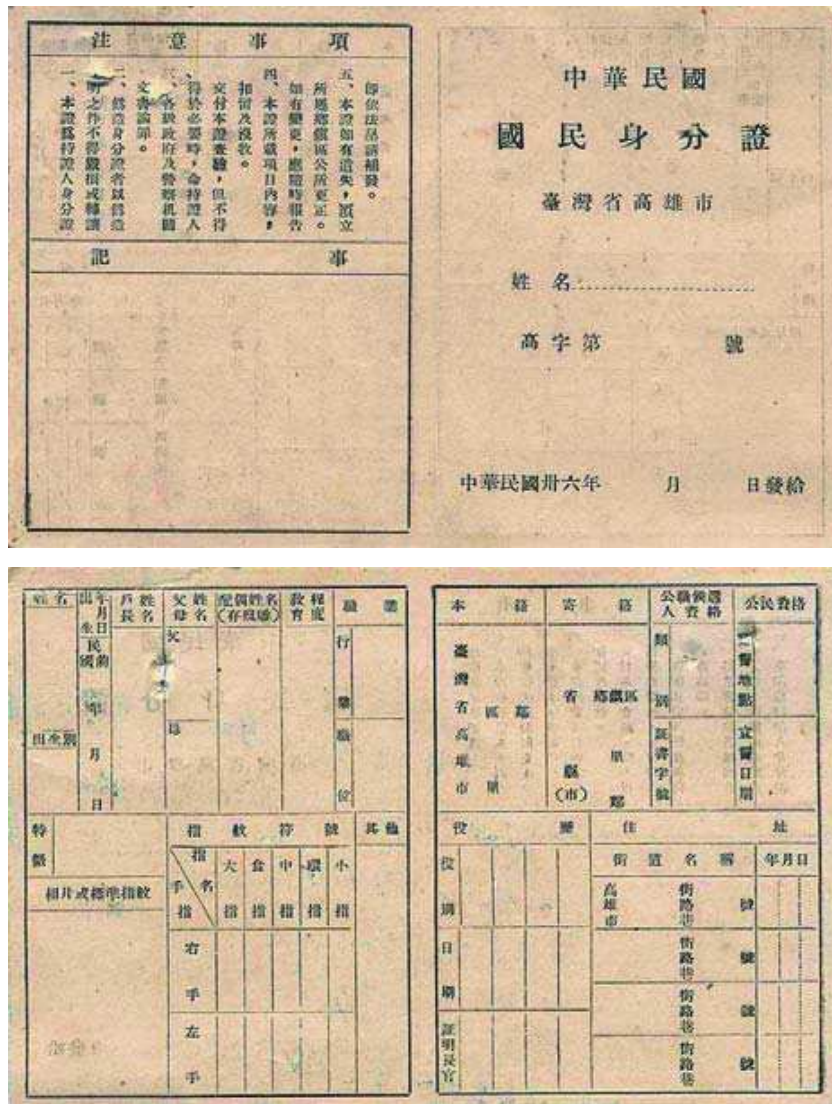 注意事項
一、本證爲持證人身分證
明之件不得毀損或轉讓
二、僞造身分證者以僞造
文書論罪。
三、各級政府及警察機關
得於必要時，命持證人
交付本證查驗，但不得
扣留及沒收。
四、本證所載項目內容，
如有變更，應隨時報告
所屬鄉鎮區公所更正。
五、本證如有遺失，須立
即依法呈請補發。
記事
中華民國
國民身分證
臺灣省高雄市
姓名
高字第 號
中華民國卅六年 月 日發給
姓名
出生別
出生年月日
民國前 年 月 日
戶長姓名
父母姓名
父
母
配偶姓名
(存歿或離)
教育程度
職業
行業
職位
特徵
相片或標準指紋
指紋符號
指名
手指
大指
食指
中指
環指
小指
右手
左手
其他
本籍
臺灣省高雄市 區 里 鄰
寄籍
省 縣(市) 鄉鎮區 里 鄰
公職候選人資格
類別
証書字號
公民資格
宣誓地點
宣誓日期
役歷
役別
日期
証明長官
住址
街道名稱
年月日
高雄市 街路巷 號
街路巷 號
街路巷 號
街路巷 號